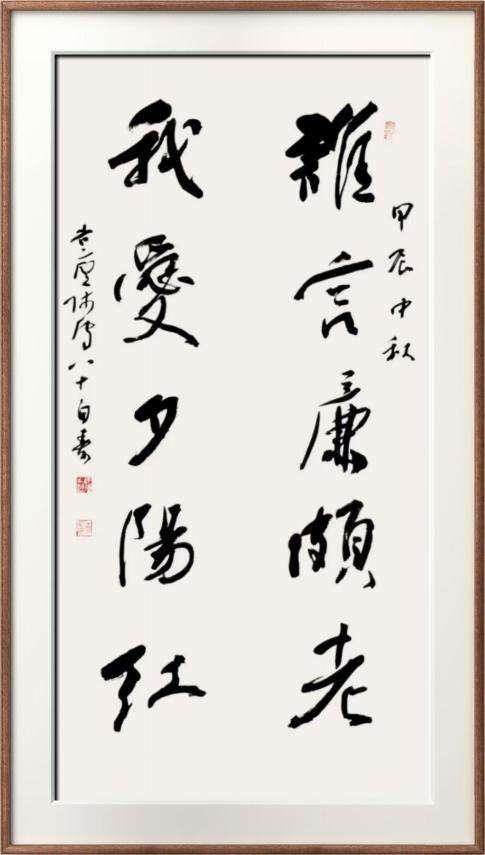 甲辰中秋
難言廉頗老
我愛夕陽紅
八十自壽